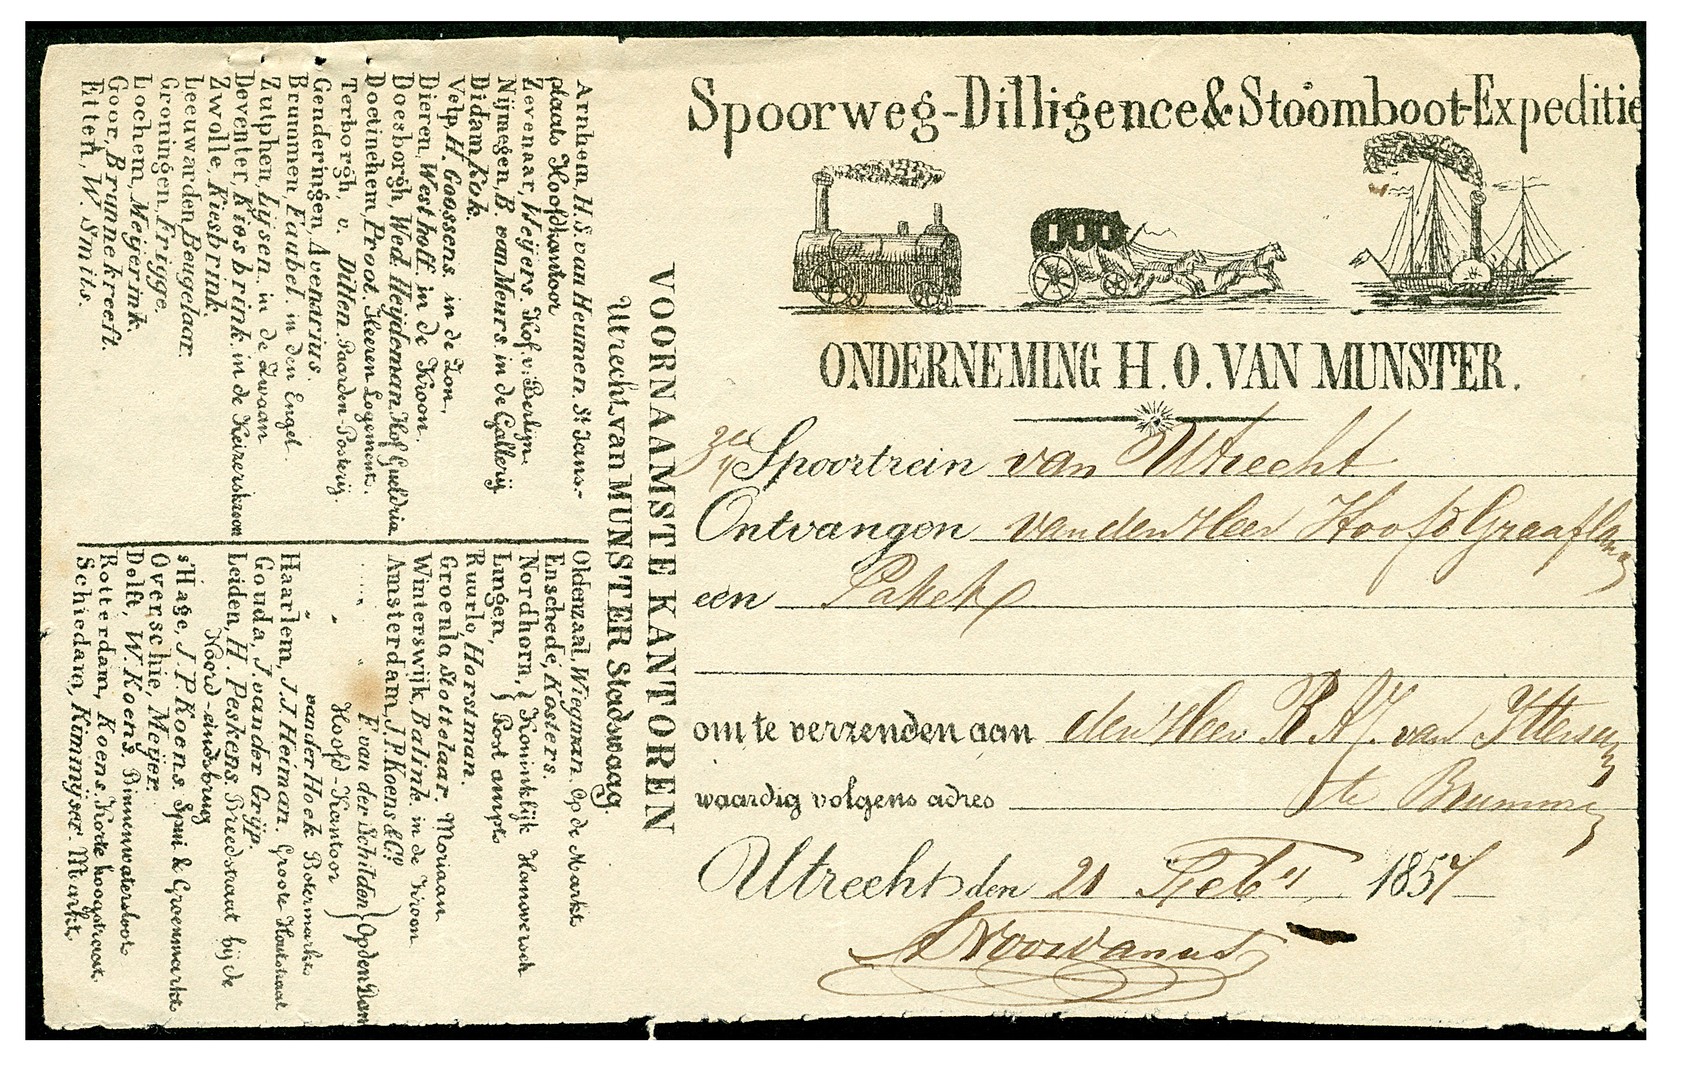 Spoorweg-Dilligence & Stoomboot-Expeditie
ONDERNEMING H. O. VAN MUNSTER.
Spoortrein van Utrecht
Ontvangen van den Heer Hoofd Graafland
een Pakek
om te verzenden aan den Heer R A J. van Ittersum
waardig volgens adres te Brummen
Utrecht den 21 Feb 1857
VOORNAAMSTE KANTOREN
Utrecht, van MUNSTER Stadswaag.
Arnhem, H. S. van Heumen, St Jans-
plaats Hoofdkantoor
Zevenaar, Weijers. Hof v: Berlijn.
Nijmegen, B. van Meurs. in de Gallerij
Didam, Kok.
Velp, H. Goossens. in de Zon,
Dieren, Westhoff. in de Kroon.
Doesborgh, Wed. Heijdeman. Hof Gueldria
Doetinchem, Proot. Heeren Logement.
Terborgh, v. Dillen. Paarden-Posterij.
Genderingen, Avenarius.
Brummen, Faubel. in den Engel.
Zutphen, Lijsen. in de Zwaan
Deventer, Kiosbrink. in de Keizerskroon
Zwolle, Kiesbrink.
Leeuwarden, Beugelaar.
Groningen, Frigge.
Lochem, Meijerink.
Goor, Brunnekreeft.
Etten, W. Smits.
Oldenzaal, Wiegman. Op de Markt
Enschedé, Kosters.
Nordhorn, } Koninklijk Hanoversch
Lingen, } Post ampt
Ruurlo, Horstman.
Groenlo, Stottelaar. Moriaan
Winterswijk, Balink. in de Kroon.
Amsterdam, J. P. Koens & Co.
" " F. van der Schilden } Op den Dam
Hoofd-Kantoor
" van der Hoek Botermarkt
Haarlem, J. J. Heiman. Groote Houtstraat
Gouda, J. van der Grijp.
Leiden, H. Peskens. Breedstraat bij de
Noord-eindsbrug
s'Hage, J. P. Koens. Spui & Groenmarkt
Overschie, Meijer.
Delft, W. Koens. Binnenwatersloot
Rotterdam, Koens. Korte hoogstraat.
Schiedam, Kimmijser. Markt.